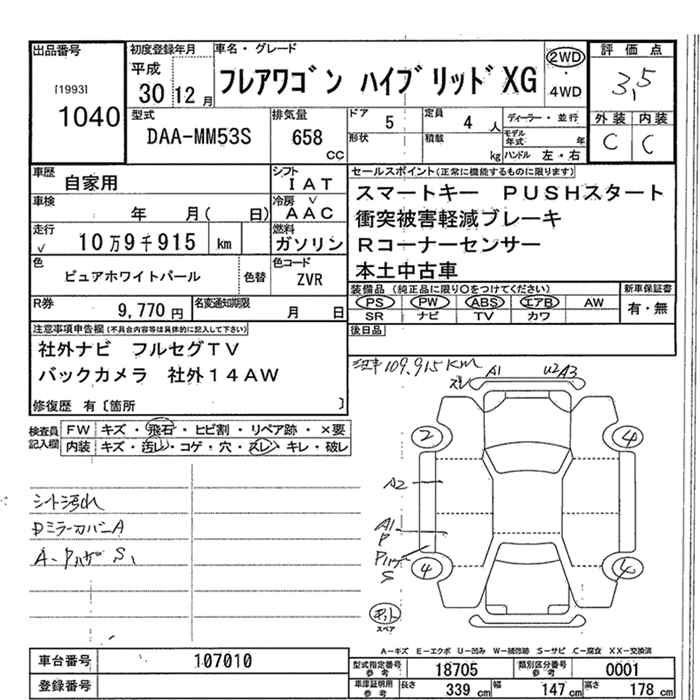 出品番号
[1993]
1040
初度登録年月
平成
30 12 月
車名・グレード
フレアワゴン ハイブリッドXG
2WD
・
4WD
評価点
3.5
外装 内装
C C
型式
DAA-MM53S
排気量
658
CC
ドア
5
定員
4 人
形状
積載
kg
ディーラー・並行
モデル年式 年
ハンドル 左・右
車歴
自家用
シフト
IAT
車検
年 月( 日)
冷房
AAC
走行
10万9千915 km
燃料
ガソリン
色
ピュアホワイトパール
色替
色コード
ZVR
R券
9,770 円
名変通知期限
月 日
セールスポイント(正常に機能するものに限ります)
スマートキー PUSHスタート
衝突被害軽減ブレーキ
Rコーナーセンサー
本土中古車
装備品 (純正品に限り○をつけてください)
PS PW ABS エアB AW
SR ナビ TV カワ
新車保証書
有・無
後日品
注意事項申告欄(不具合内容等は具体的に記入して下さい)
社外ナビ フルセグTV
バックカメラ 社外14AW
修復歴 有〔箇所 〕
検査員
記入欄
FW キズ・飛石・ヒビ割・リペア跡・×要
内装 キズ・汚レ・コゲ・穴・スレ・キレ・破レ
109,915KM
A1 U2 A3
2 4
A2
A1
P
S
4 4
スペア
シート汚れ
DミラーカバーA
A-キズ E-エクボ U-凹み W-補修跡 S-サビ C-腐食 XX-交換済
車台番号
107010
登録番号
型式指定番号
参考
18705
類別区分番号
参考
0001
車庫証明用
参考
長さ 339 cm 幅 147 cm 高さ 178 cm